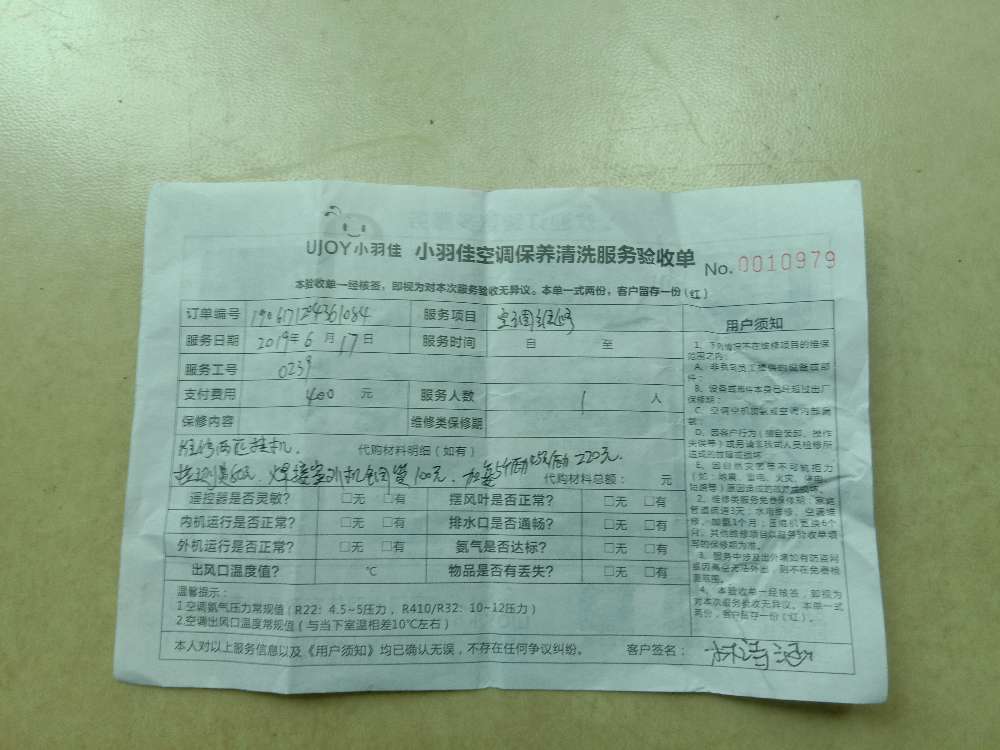 UJOY小羽佳 小羽佳空调保养清洗服务验收单 No. 0010979
本验收单一经核签，即视为对本次服务验收无异议。本单一式两份，客户留存一份（红）
订单编号 190617124361084 服务项目 空调维修
服务日期 2019年6月17日 服务时间 自 至
服务工号 0239
支付费用 400 元 服务人数 1 人
保修内容 维修类保修期
维修两匹挂机. 代购材料明细（如有）
焊接室外机铜管100元. 220元. 代购材料总额： 元
遥控器是否灵敏？ □无 □有 摆风叶是否正常？ □无 □有
内机运行是否正常？ □无 □有 排水口是否通畅？ □无 □有
外机运行是否正常？ □无 □有 氨气是否达标？ □无 □有
出风口温度值？ ℃ 物品是否有丢失？ □无 □有
温馨提示：
1.空调氨气压力常规值（R22：4.5~5压力，R410/R32：10~12压力）
2.空调出风口温度常规值（与当下室温相差10℃左右）
本人对以上服务信息以及《用户须知》均已确认无误，不存在任何争议纠纷。 客户签名：
用户须知
1、下列情况不在维修项目的维保
范围之内：
A、非我司员工提供的设备或部
件；
B、设备或部件本身已经超过出厂
保修期；
D、因客户行为（擅自装卸、操作
失误等）或另请非我司人员检修所
造成的故障或损坏；
E、因自然灾害等不可抗拒力
（如：地震、雷电、火灾、
2、维修类服务免费保修期：家庭
管道疏通3天；水电维修、空调维
修、加氨1个月；压缩机更换6个
月。其他维修项目以服务验收单填
写的保修期为准。
3、服务中涉及出外墙如有防盗网
4、本验收单一经核签，即视为
对本次服务验收无异议。本单一式
两份，客户留存一份（红）。